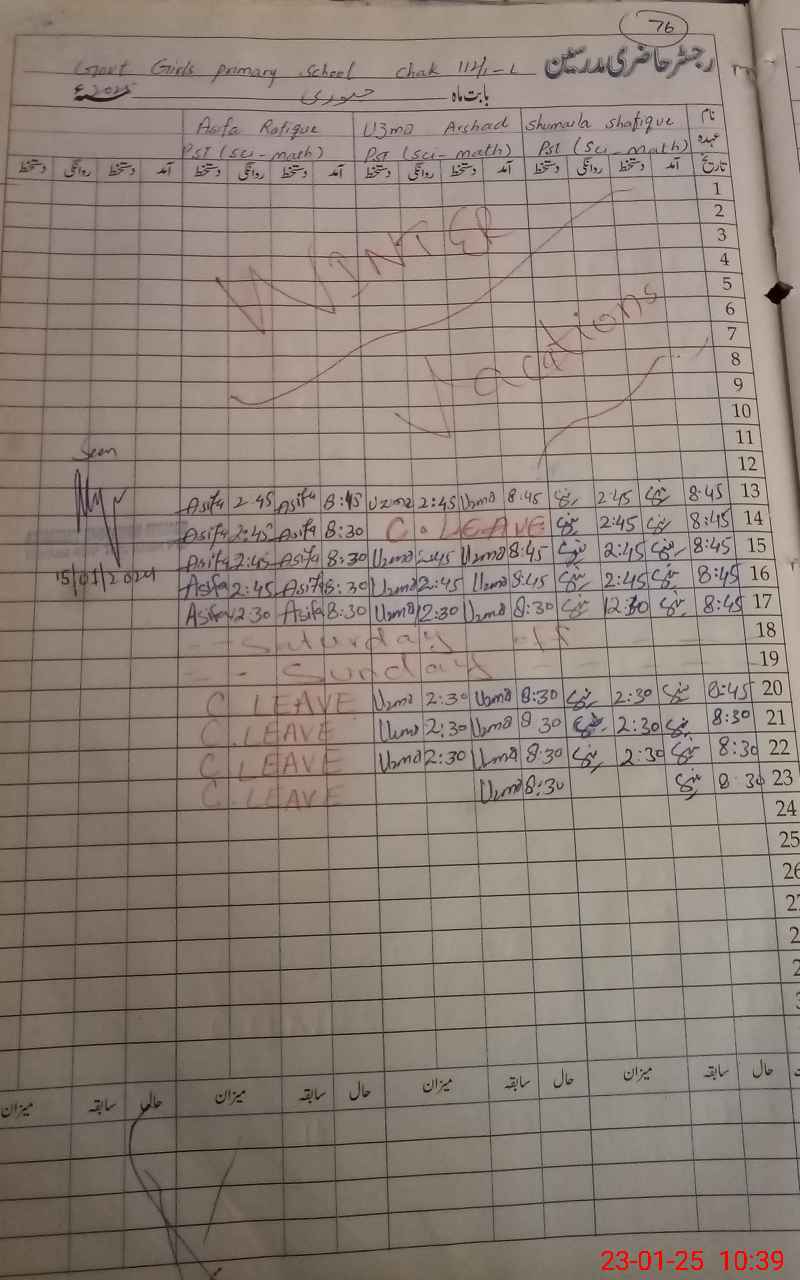 76
Govt Girls primary school chak 112/1-L رجسٹر حاضری مدرسین
بابت ماہ جنوری 2025ء
نام Shumaila Shafique Uzma Arshad Asifa Rafique
عہدہ PST (Sci-math) PST (Sci-math) PST (Sci-math)
تاریخ آمد دستخط روانگی دستخط آمد دستخط روانگی دستخط آمد دستخط روانگی دستخط آمد دستخط روانگی دستخط
1
2
3
4
5
6
7
8
9
10
11
12
WINTER
Vacations
Seen
15/01/2024
Asifa 2:45 Asifa 8:45 Uzma 2:45 Uzma 8:45 2:45 8:45 13
Asifa 2:45 Asifa 8:30 C. LEAVE 2:45 8:45 14
Asifa 2:45 Asifa 8:30 Uzma 2:45 Uzma 8:45 2:45 8:45 15
Asifa 2:45 Asifa 8:30 Uzma 2:45 Uzma 8:45 2:45 8:45 16
Asifa 2:30 Asifa 8:30 Uzma 12:30 Uzma 8:30 12:30 8:45 17
Saturday off 18
Sunday 19
C. LEAVE Uzma 2:30 Uzma 8:30 2:30 8:45 20
C. LEAVE Uzma 2:30 Uzma 8 30 2:30 8:30 21
C. LEAVE Uzma 2:30 Uzma 8:30 2:30 8:30 22
C. LEAVE Uzma 8:30 8:30 23
24
25
26
حال سابقہ میزان حال سابقہ میزان حال سابقہ میزان حال سابقہ میزان
23-01-25 10:39